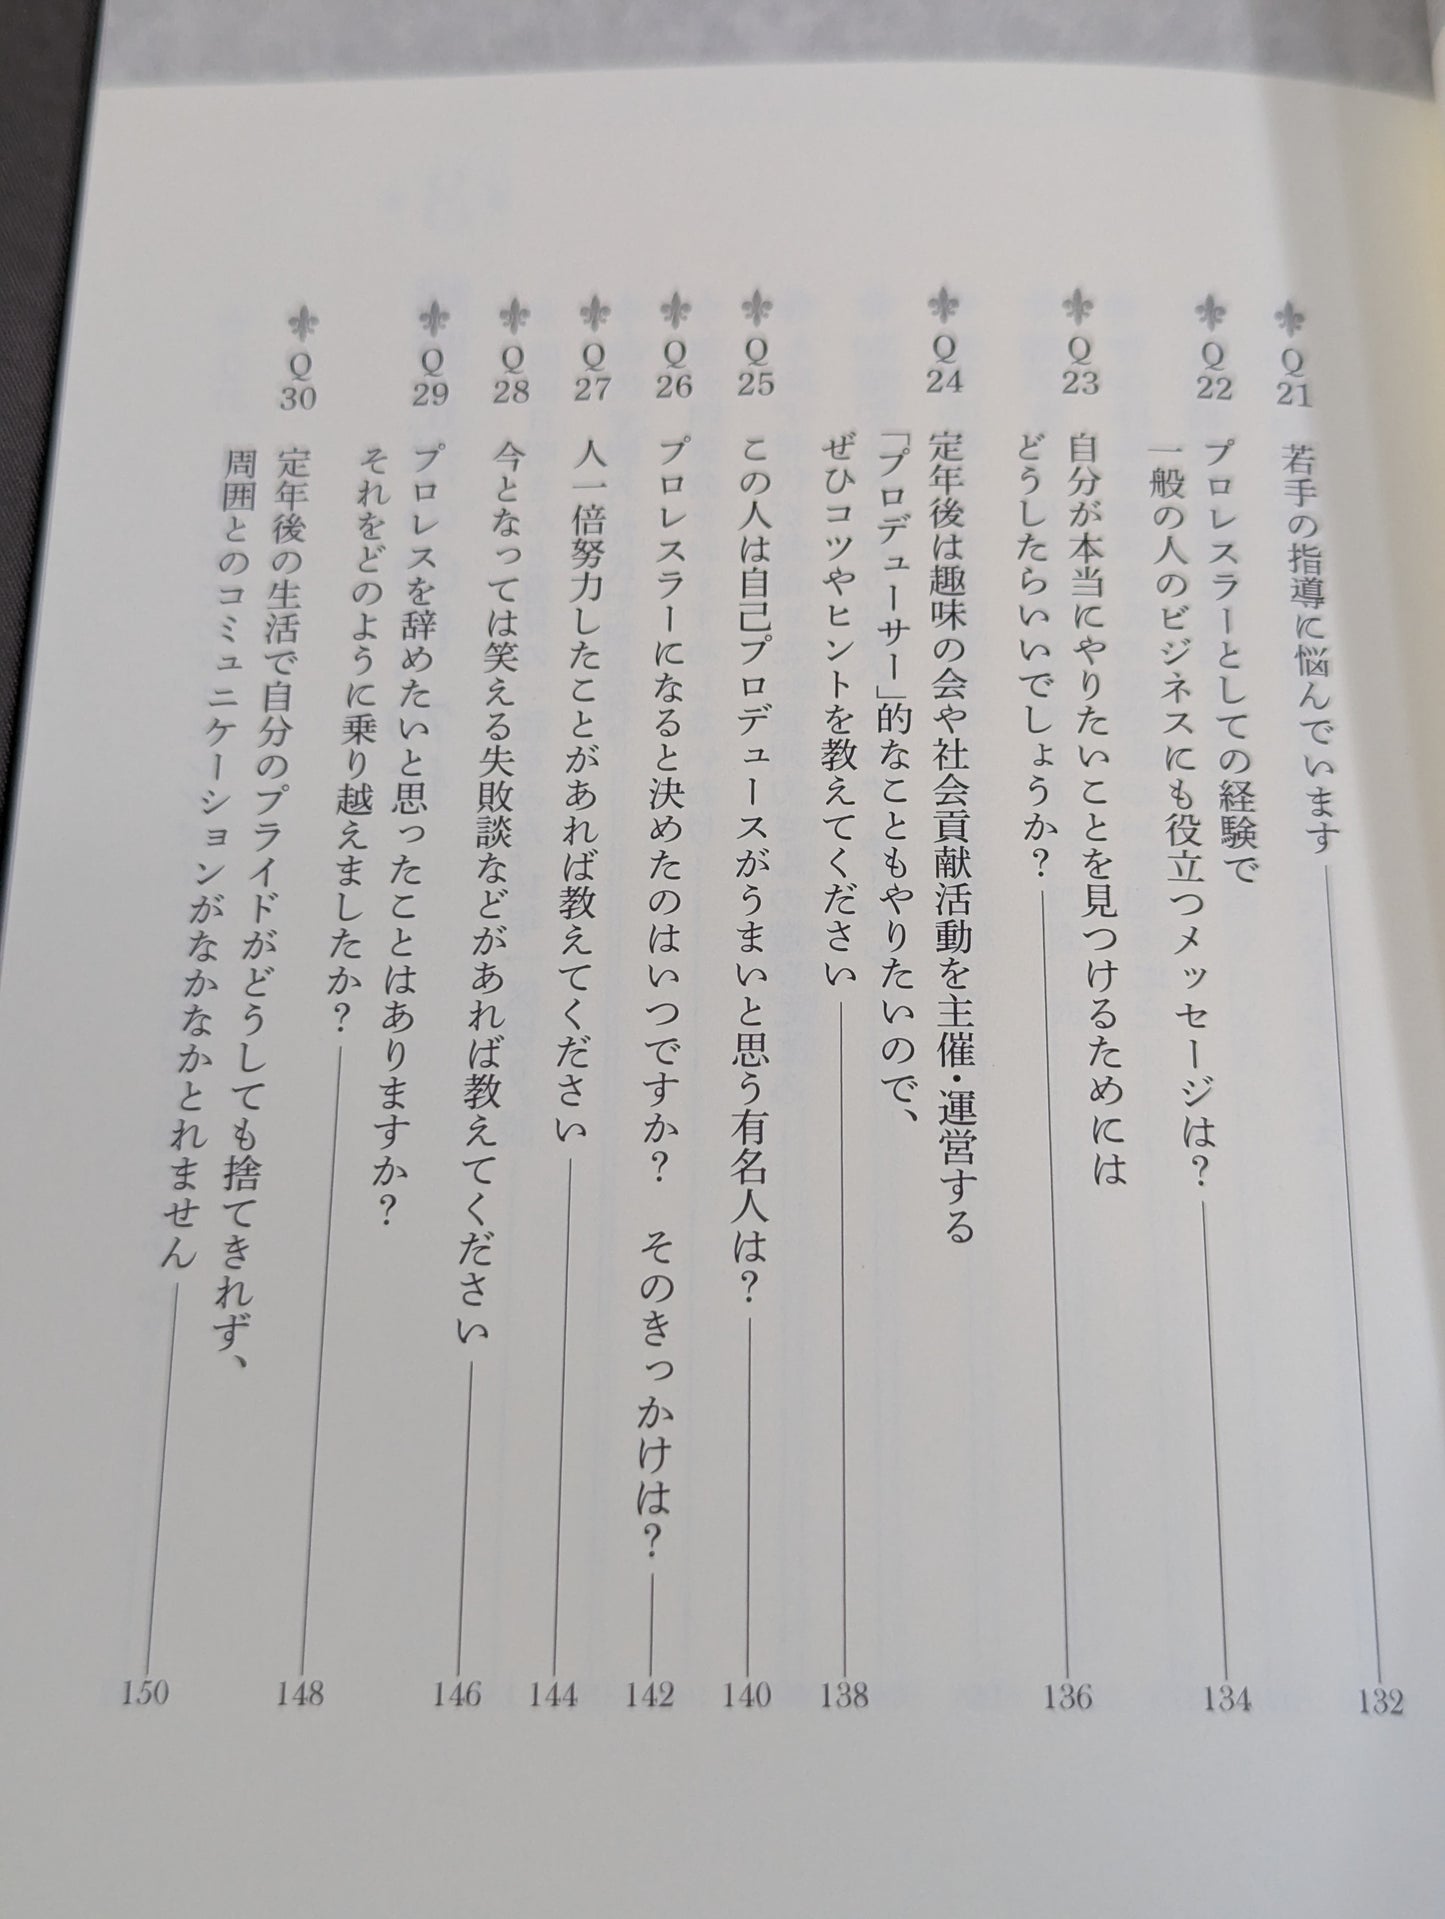 Q21 若手の指導に悩んでいます 132
Q22 プロレスラーとしての経験で
一般の人のビジネスにも役立つメッセージは? 134
Q23 自分が本当にやりたいことを見つけるためには
どうしたらいいでしょうか? 136
Q24 定年後は趣味の会や社会貢献活動を主催・運営する
「プロデューサー」的なこともやりたいので、
ぜひコツやヒントを教えてください 138
Q25 この人は自己プロデュースがうまいと思う有名人は? 140
Q26 プロレスラーになると決めたのはいつですか? そのきっかけは? 142
Q27 人一倍努力したことがあれば教えてください 144
Q28 今となっては笑える失敗談などがあれば教えてください 146
Q29 プロレスを辞めたいと思ったことはありますか?
それをどのように乗り越えましたか? 148
Q30 定年後の生活で自分のプライドがどうしても捨てきれず、
周囲とのコミュニケーションがなかなかとれません 150